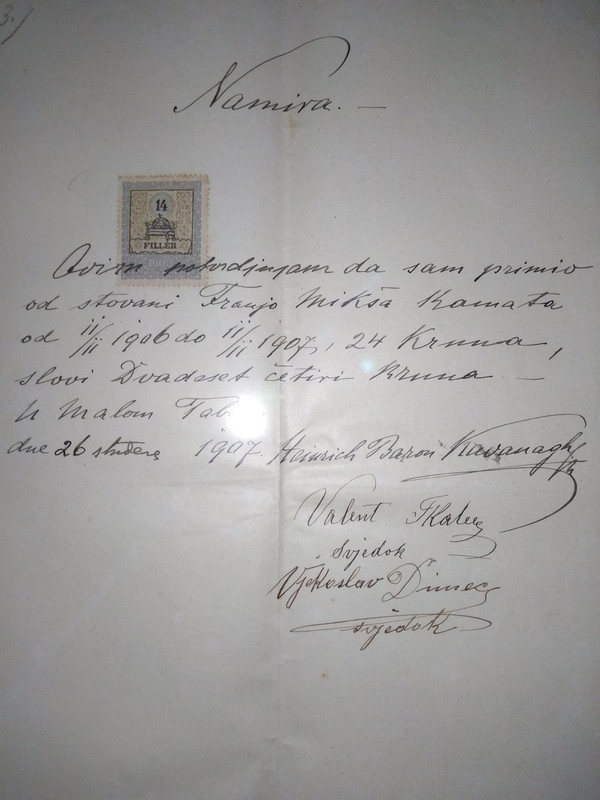 3.)
Namira. —
14
FILLER
Ovim potvrdjujam da sam primio
od stovani Franjo Mikša Kamata
od ii/ii 1906 do ii/ii 1907, 24 Kruna,
slovi Dvadeset četiri Kruna —
U Malom
dne 26 1907. Heinrich Baron Kavanagh
Valent
svjedok
Vjekoslav Dimec
svjedok